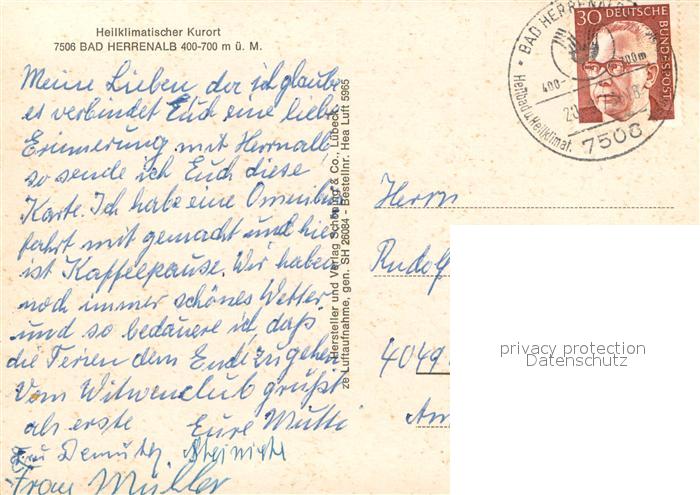 Heilklimatischer Kurort
7506 BAD HERRENALB 400-700 m ü. M.
Meine Lieben, da ich glaube
es verbindet Euch eine liebe
Erinnerung mit Herrnalb
so sende ich Euch diese
Karte. Ich habe eine Omnibus
fahrt mit gemacht und hier
ist Kaffeepause. Wir haben
noch immer schönes Wetter
und so bedauere ich, daß
die Ferien dem Ende zugehen.
Vom Witwenclub grüßt
als erste Eure Mutti
Frau Müller
Hersteller und Verlag Schöning & Co., Lübeck
Luftaufnahme, gen. SH 26084 - Bestellnr. Hea Luft 5965
BAD HERRENALB
Heilbad u. Heilklimat.
7506
30 DEUTSCHE
BUNDESPOST
Herrn
Rudolf
4049
privacy protection
Datenschutz